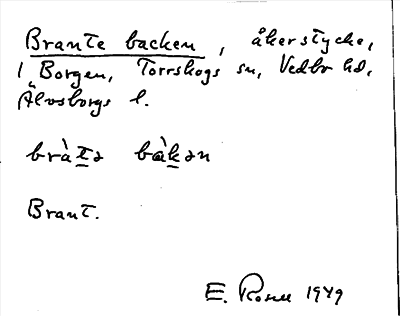 Brante backen, åkerstycke,
1 Borgen, Torrskogs sn, Vedbo hd,
Älvsborgs l.
bràt̲ə bàk̲ən
Brant.
E. Rosell 1949